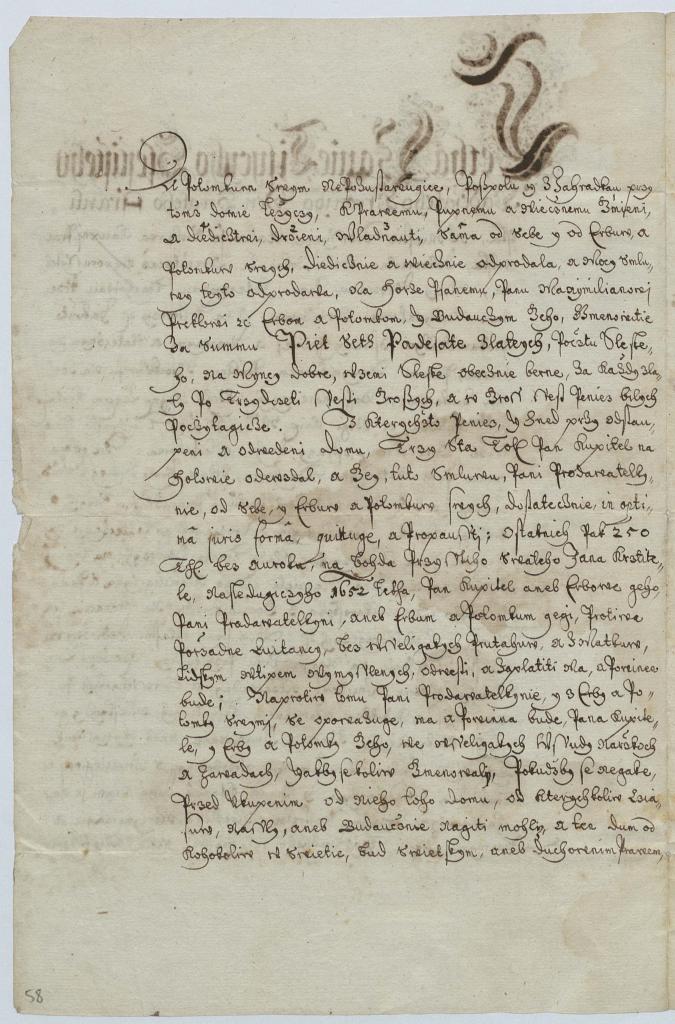 A Potomkum swym nepozustawugice, pospolu y z Zahradkau przy
tomž domie ležyczy, k Prawemu, Puxnemu a wiecznemu Zmieni,
a diedicztwi, držieni, wladnauti, sama od sebe y od Erbuw, a
Potomkuw swych, diedicznie a wiecznie odprodala, a mocy smlu-
wy teyto odprodawa, na horže Psanemu, Panu Maxymilianowj
Erbom a Potomkom, y budauczym Jeho, Zmenowitie
za summu Piet Seth Padesate Zlatych, Počztu Sleske-
ho, na Mynczy dobre, w zemi Sleske obecznie berne, za každy zla-
ty po Trzydczeti Ssesti Grossych, a w Gross Ssest Peniez bilych
poczytagicze. Z kterychžto Peniez, y hned przy odstau-
peni a odwedeni domu, Trzy Sta Tol. Pan Kupitel na
hotowie odewzdal, a Jey, tuto smluwu, Pani Prodawatelky-
nie, od sebe, y Erbuw a Potomkuw swych, dostatecznie, in opti-
mâ juris formâ, quittuge, a propausstj; Ostatnich Pak 250
Tol. bez auroku, na 
le, nasledugiczyho 1652 Letha, Pan Kupitel aneb Erbowe geho
Pani Prodawatelkyni, aneb Erbum a Potomkum gegi, Protiwa
Pořzadne Quitancy, bez wsseligakych Prutahuw, a Zmatkuw,
Lidskym wtipem wymysslenych, odwesti, a zaplatiti ma, a Powinen
bude; Naprotiw tomu Pani Prodawatelkynie, y s Erby a Po-
tomky swymi, se opowažuge, ma a Powinna bude, Pana Kupite-
le, y Erby a Potomky Jeho, we wsseligakych 
a zawadach, yakby se koliw Zmenowaly, Pokudžby se negake,
Przed Vkupenim od nieho toho domu, od kterychkoliw 
suw, nassly, aneb Budaucznie nagiti mohly, a ten dum od
kohokoliw w Swietie, bud Swietskym, aneb duchownim Prawem,
58